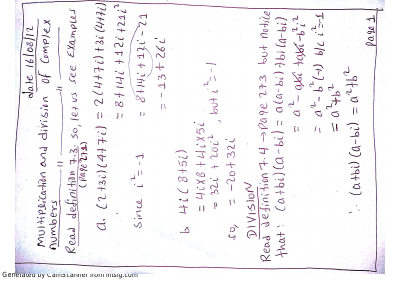 date 16/08/12
Multiplication and division of complex
numbers
Read definition 7.3. So, let us see Examples
(page 273)
a. (2+3i)(4+7i) = 2(4+7i)+3i(4+7i)
= 8+14i+12i+21i²
Since i²=-1 = 8+14i+12i-21
= -13+26i
b 4i(8+5i)
= 4i×8+4i×5i
= 32i+20i², but i²=-1
so, = -20+32i
DIVISION
Read definition 7.4 → Page 273 but notice
that: (a+bi)(a-bi) = a(a-bi)+bi(a-bi)
= a²-abi+abi-b²i²
= a²-b²(-1) b/c i²=-1
= a²+b²
∴ (a+bi)(a-bi) = a²+b²
page 1
Generated by CamScanner from intsig.com